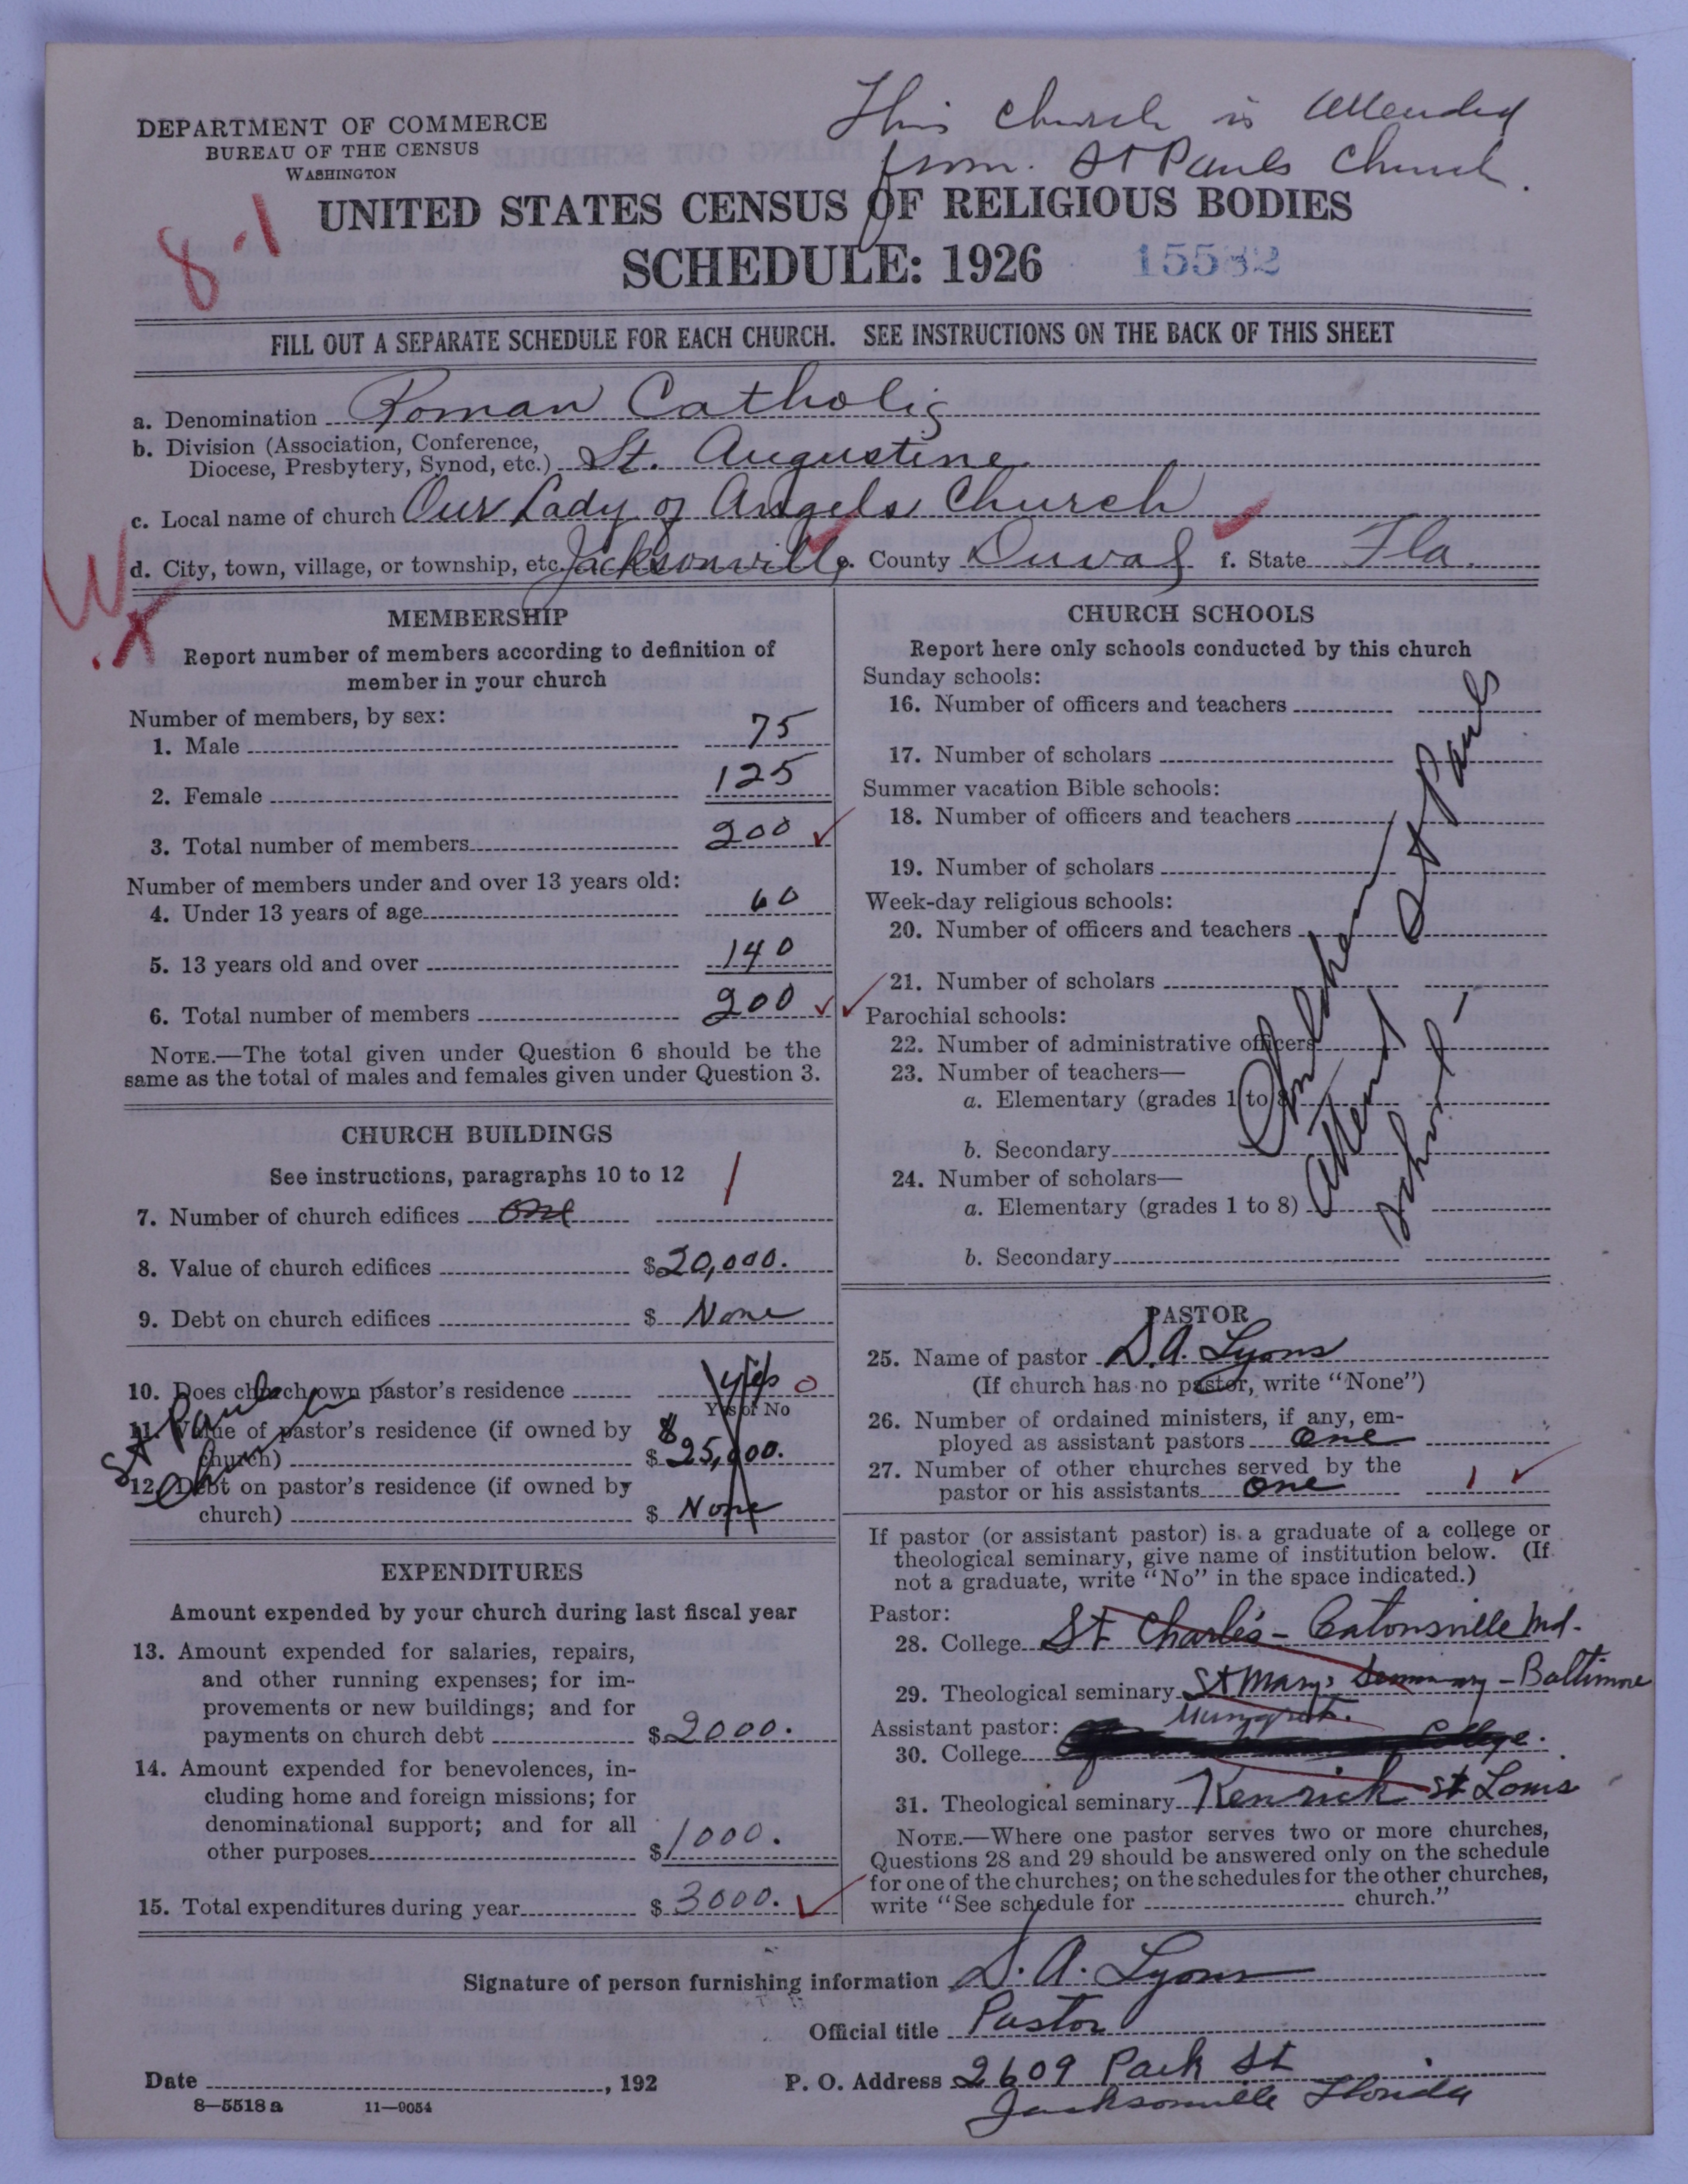 This church is attended
from St Pauls Church.
DEPARTMENT OF COMMERCE
BUREAU OF THE CENSUS
WASHINGTON
8.1
UNITED STATES CENSUS OF RELIGIOUS BODIES
SCHEDULE: 1926
FILL OUT A SEPARATE SCHEDULE FOR EACH CHURCH. SEE INSTRUCTIONS ON THE BACK OF THIS SHEET
a. Denomination Roman Catholic
b. Division (Association, Conference,
Diocese, Presbytery, Synod, etc.) St. Augustine
c. Local name of church Our Lady of Angels Church
d. City, town, village, or township, etc. Jacksonville e. County Duval f. State Fla.
W
x
MEMBERSHIP
Report number of members according to definition of
member in your church
Number of members, by sex:
1. Male 75
2. Female 125
3. Total number of members 200
Number of members under and over 13 years old:
4. Under 13 years of age 60
5. 13 years old and over 140
6. Total number of members 200
NOTE.—The total given under Question 6 should be the
same as the total of males and females given under Question 3.
CHURCH BUILDINGS
See instructions, paragraphs 10 to 12
7. Number of church edifices one 1
8. Value of church edifices $20,000.
9. Debt on church edifices $ None
10. Does church own pastor's residence yes 0
Yes or No
11. Value of pastor's residence (if owned by
church) $25,000.
12. Debt on pastor's residence (if owned by
church) $ None
St Pauls
Church
EXPENDITURES
Amount expended by your church during last fiscal year
13. Amount expended for salaries, repairs,
and other running expenses; for im-
provements or new buildings; and for
payments on church debt $2000.
14. Amount expended for benevolences, in-
cluding home and foreign missions; for
denominational support; and for all
other purposes $1000.
15. Total expenditures during year $3000.
CHURCH SCHOOLS
Report here only schools conducted by this church
Sunday schools:
16. Number of officers and teachers
17. Number of scholars
Summer vacation Bible schools:
18. Number of officers and teachers
19. Number of scholars
Week-day religious schools:
20. Number of officers and teachers
21. Number of scholars
Parochial schools:
22. Number of administrative officers
23. Number of teachers—
a. Elementary (grades 1 to 8)
b. Secondary
24. Number of scholars—
a. Elementary (grades 1 to 8)
b. Secondary
Children
attend St Pauls
school
PASTOR
25. Name of pastor D.A. Lyons
(If church has no pastor, write "None")
26. Number of ordained ministers, if any, em-
ployed as assistant pastors one
27. Number of other churches served by the
pastor or his assistants one 1
If pastor (or assistant pastor) is a graduate of a college or
theological seminary, give name of institution below. (If
not a graduate, write "No" in the space indicated.)
Pastor:
28. College St Charles - Catonsville Md.
29. Theological seminary St Marys Seminary - Baltimore
Assistant pastor: Mungret.
30. College College.
31. Theological seminary Kenrick St Louis
NOTE.—Where one pastor serves two or more churches,
Questions 28 and 29 should be answered only on the schedule
for one of the churches; on the schedules for the other churches,
write "See schedule for church."
Signature of person furnishing information D. A. Lyons
Official title Pastor
Date , 192 P. O. Address 2609 Park St
Jacksonville Florida
8—5518 a 11—9054